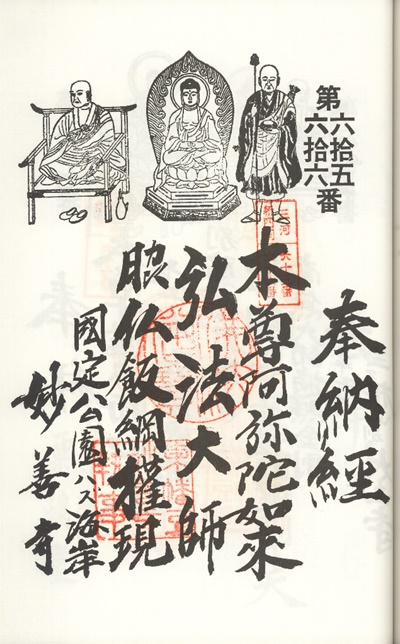 第六拾五
六拾六番
奉納經
本尊阿弥陀如来
弘法大師
脇仏飯綱權現
國定公園ハズ海岸
妙善寺